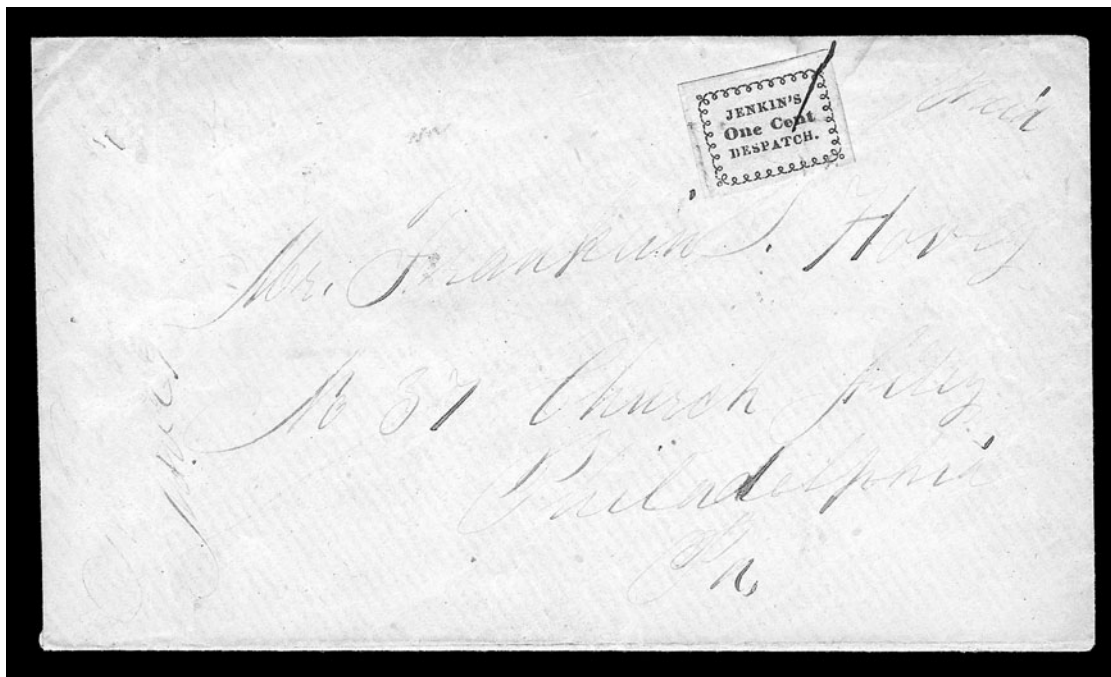 JENKIN'S
One Cent
DESPATCH.
Paid
Mr. Franklin S. Hovey
No 37 Church
Philadelphia
Pa,